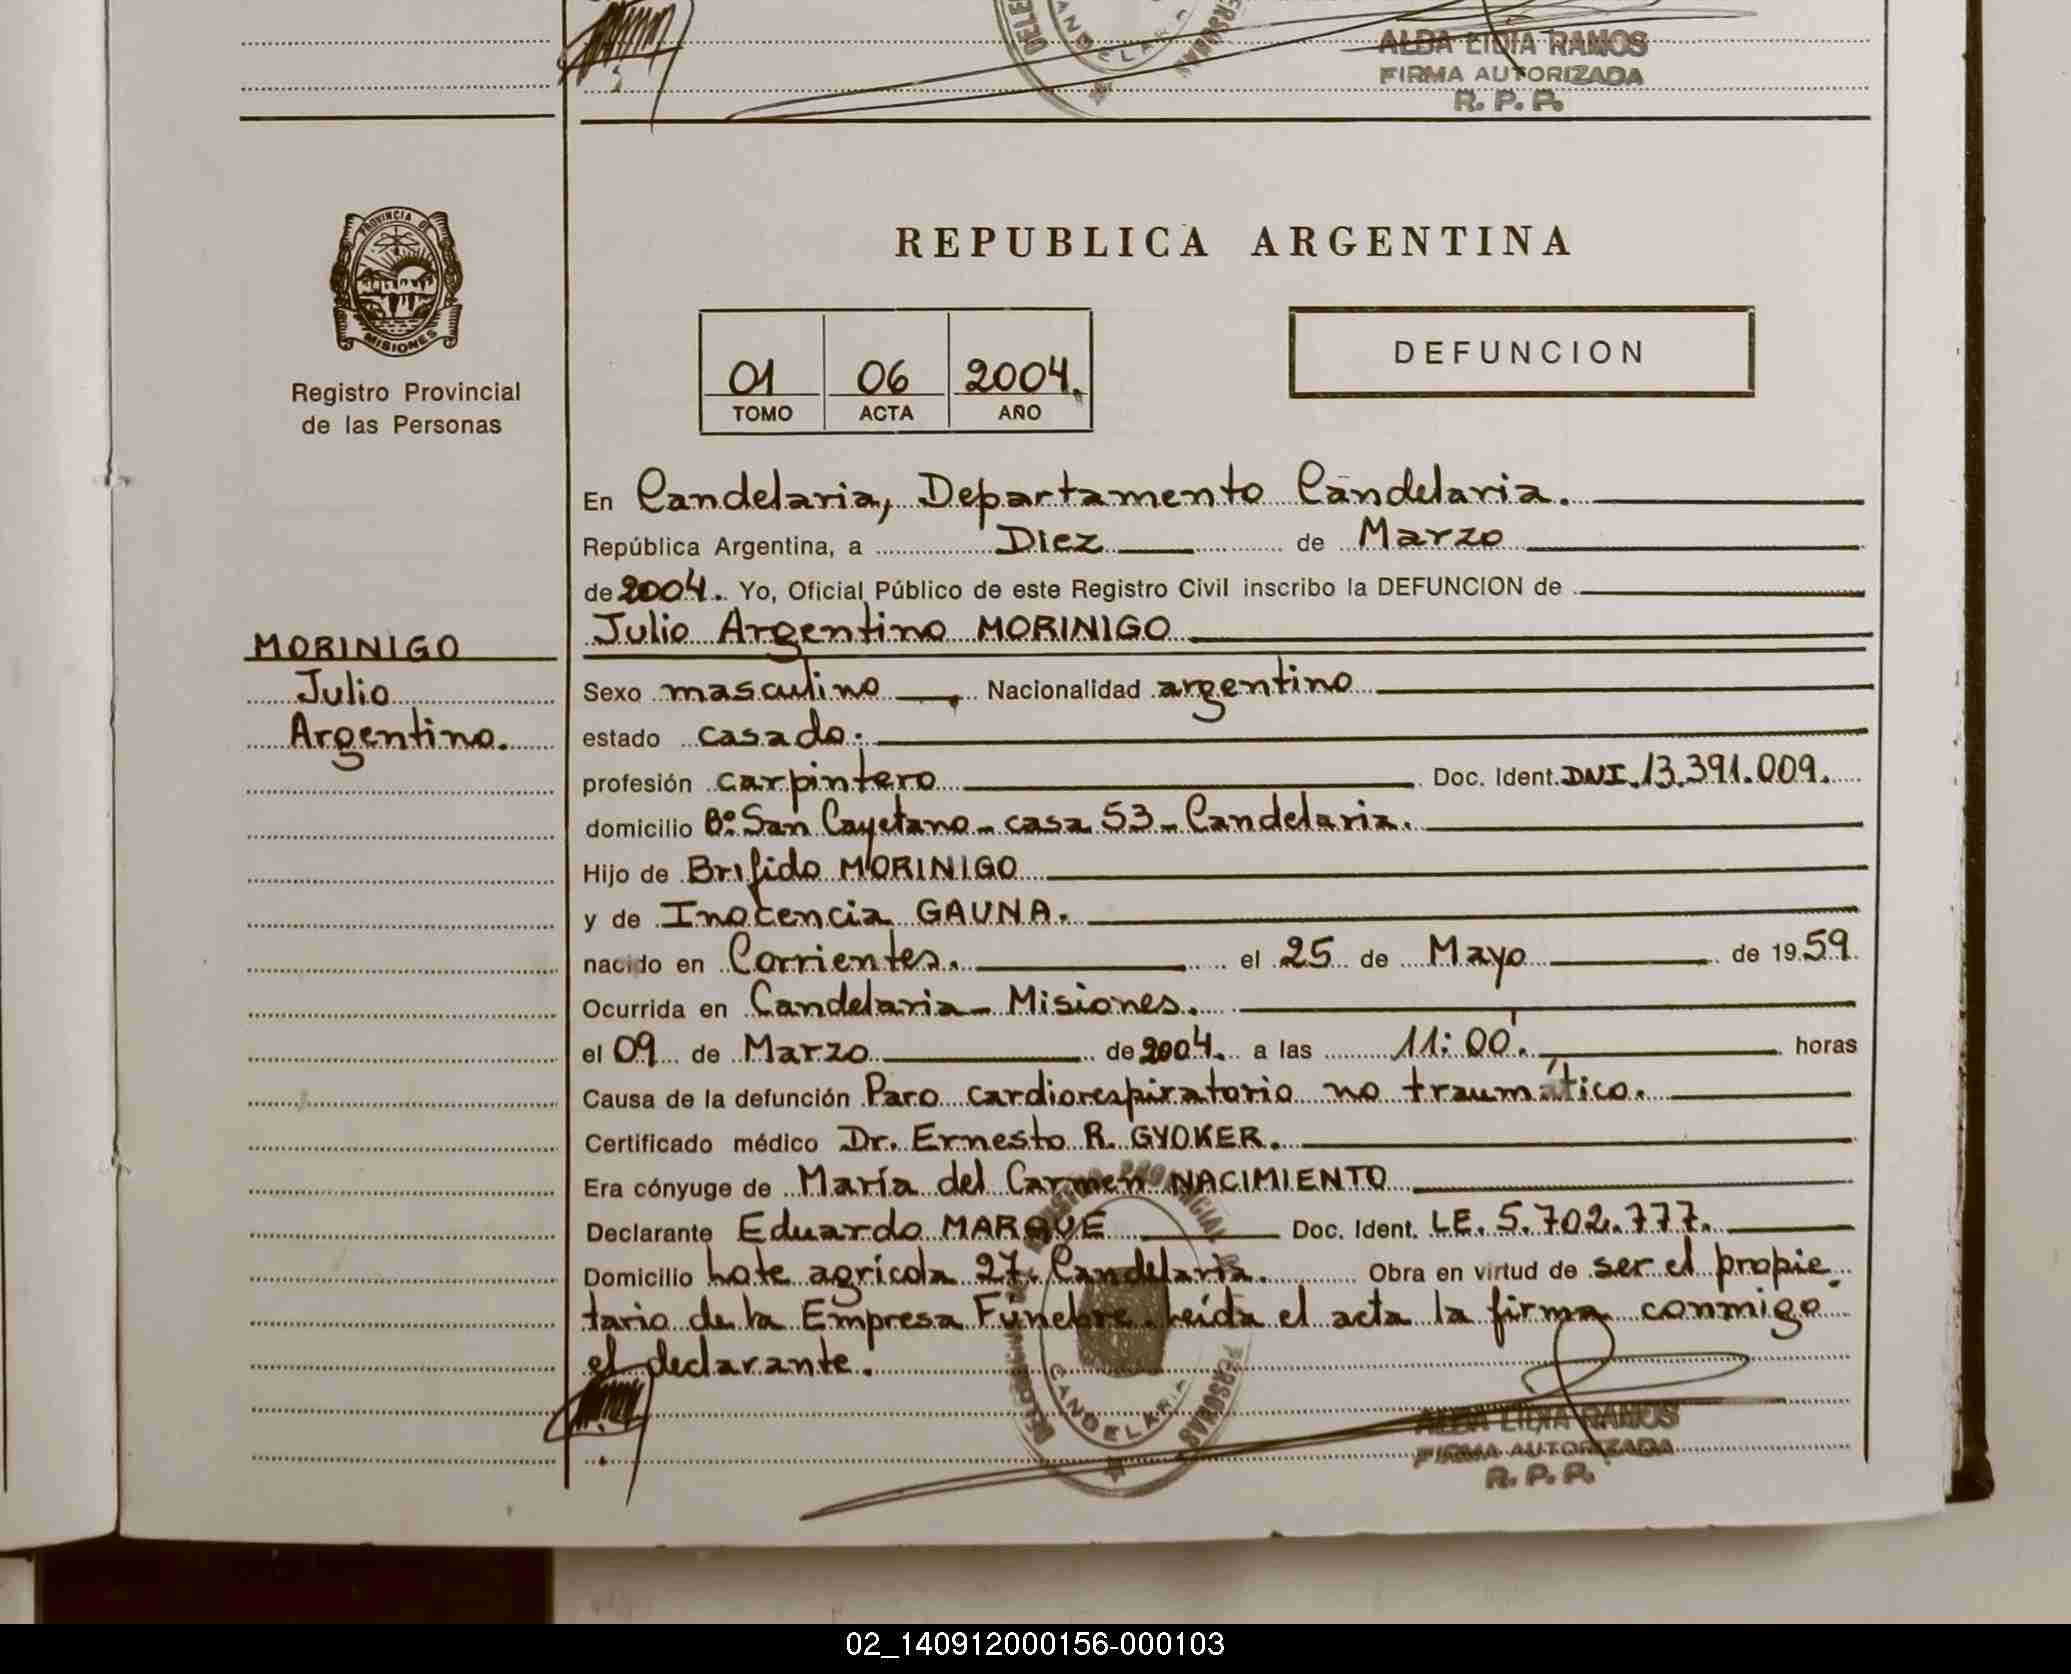 ALBA LIDIA RAMOS
FIRMA AUTORIZADA
R. P. P.
PROVINCIA DE
MISIONES
Registro Provincial
de las Personas
REPUBLICA ARGENTINA
01 06 2004.
TOMO ACTA AÑO
DEFUNCION
En Candelaria, Departamento Candelaria.
República Argentina, a Diez de Marzo
de 2004. Yo, Oficial Público de este Registro Civil inscribo la DEFUNCION de
Julio Argentino MORINIGO
MORINIGO
Julio
Argentino.
Sexo masculino Nacionalidad argentino
estado casado.
profesión carpintero Doc. Ident. DNI. 13.391.009.
domicilio Bº San Cayetano - casa 53 - Candelaria.
Hijo de Brifido MORINIGO
y de Inocencia GAUNA.
nacido en Corrientes. el 25 de Mayo de 1959.
Ocurrida en Candelaria - Misiones.
el 09 de Marzo de 2004. a las 11:00'. horas
Causa de la defunción Paro cardiorespiratorio no traumático.
Certificado médico Dr. Ernesto R. GYOKER.
Era cónyuge de María del Carmen NACIMIENTO
Declarante Eduardo MARQUE Doc. Ident. LE. 5.702.777.
Domicilio Lote agrícola 27. Candelaria. Obra en virtud de ser el propie
tario de la Empresa Fúnebre. Leída el acta la firma conmigo
el declarante.
CANDELARIA
PERSONAS
ALBA LIDIA RAMOS
FIRMA AUTORIZADA
R. P. P.
02_140912000156-000103